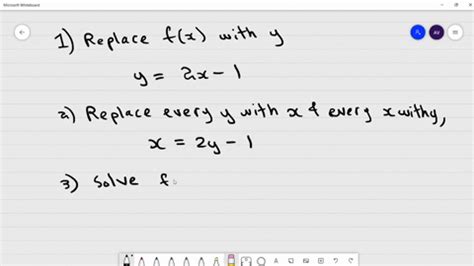 Microsoft Whiteboard
AV
1) Replace f(x) with y
y = 2x - 1
2) Replace every y with x & every x with y,
x = 2y - 1
3) Solve f